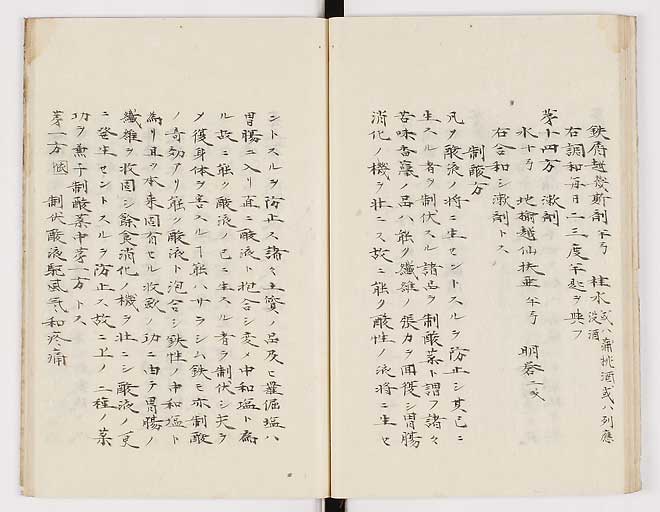 鉄屑越幾斯剤半弓 桂水 或ハ葡桃酒或ハ列應
浸酒
右調和毎日二三度半匙ヲ與フ
第十四方 漱剤
水十弓 地楡越幾斯 半弓 明礬二戔
右合和シ漱剤トス
制酸方
凡ヲ酸液ノ將ニ生セントスルヲ防止シ其已ニ
生スル者ヲ制伏スル諸品ヲ制酸薬ト謂フ諸々
苦味香竄ノ品ハ能ク纖維ノ張力ヲ固復シ胃腸
消化ノ機ヲ壮ニス故ニ能ク酸性ノ液將ニ生セ
ントスルヲ防止ス諸々土質ノ品及ヒ羅倔塩ハ
胃腸ニ入リ直ニ酸液ト抱合シ変メ中和塩ト為
ル故ニ能ク酸液ノ已ニ生スル者ヲ制伏シ夫ヲ
メ復身体ヲ害スルヿ能ハサラシム鉄モ亦制酸
ノ奇効アリ能ク酸液ト抱合シ鉄性ノ中和塩ト
為リ且ツ本来固有セル収歛ノ功ニ由テ胃腸ノ
纖維ヲ收固シ餘食消化ノ機ヲ壮ニシ酸液ノ更
ニ発生セントスルヲ防止ス故ニ上ノ二種ノ薬
功ヲ兼子制酸薬中第一方トス
第一方 制伏酸液駆風氣和疼痛